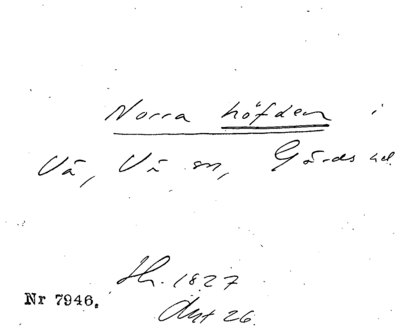 Norra höfden i
Vä, Vä sn, Gärds hd.
Sk. 1827
Akt 26.
Nr 7946.